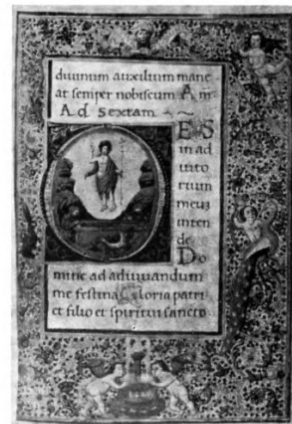 diuinum auxilium mane
at semper nobiscum Am
Ad sextam
DEus
in ad
iuto
rium
meuz
inten
de Do
mine ad adiuuandum
me festina Gloria patri
et filio et spiritui sancto